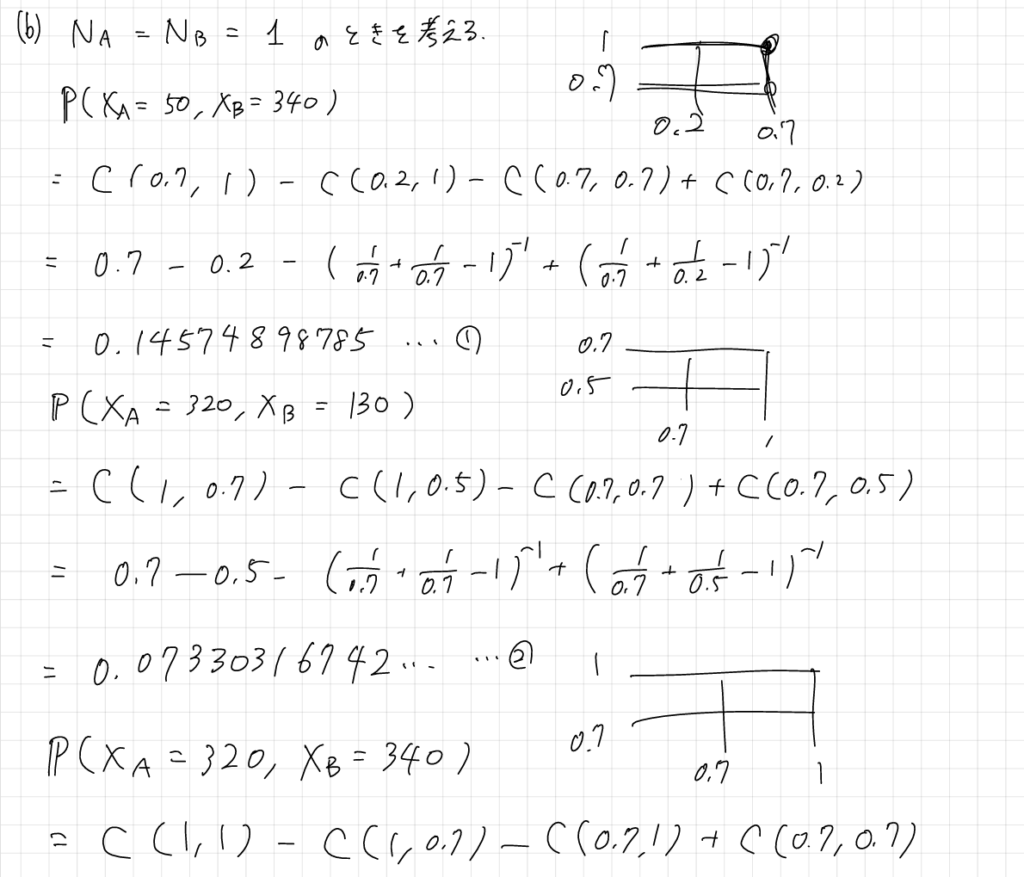 (b) N_A = N_B = 1 のときを考える.
1
0.7
0.2 0.7
P(X_A = 50, X_B = 340)
= C(0.7, 1) - C(0.2, 1) - C(0.7, 0.7) + C(0.7, 0.2)
= 0.7 - 0.2 - (1/0.7 + 1/0.7 - 1)^-1 + (1/0.7 + 1/0.2 - 1)^-1
= 0.14574898785 … ①
0.7
0.5
0.7 1
P(X_A = 320, X_B = 130)
= C(1, 0.7) - C(1, 0.5) - C(0.7, 0.7) + C(0.7, 0.5)
= 0.7 - 0.5 - (1/0.7 + 1/0.7 - 1)^-1 + (1/0.7 + 1/0.5 - 1)^-1
= 0.07330316742… …②
1
0.7
0.7 1
P(X_A = 320, X_B = 340)
= C(1, 1) - C(1, 0.7) - C(0.7, 1) + C(0.7, 0.7)